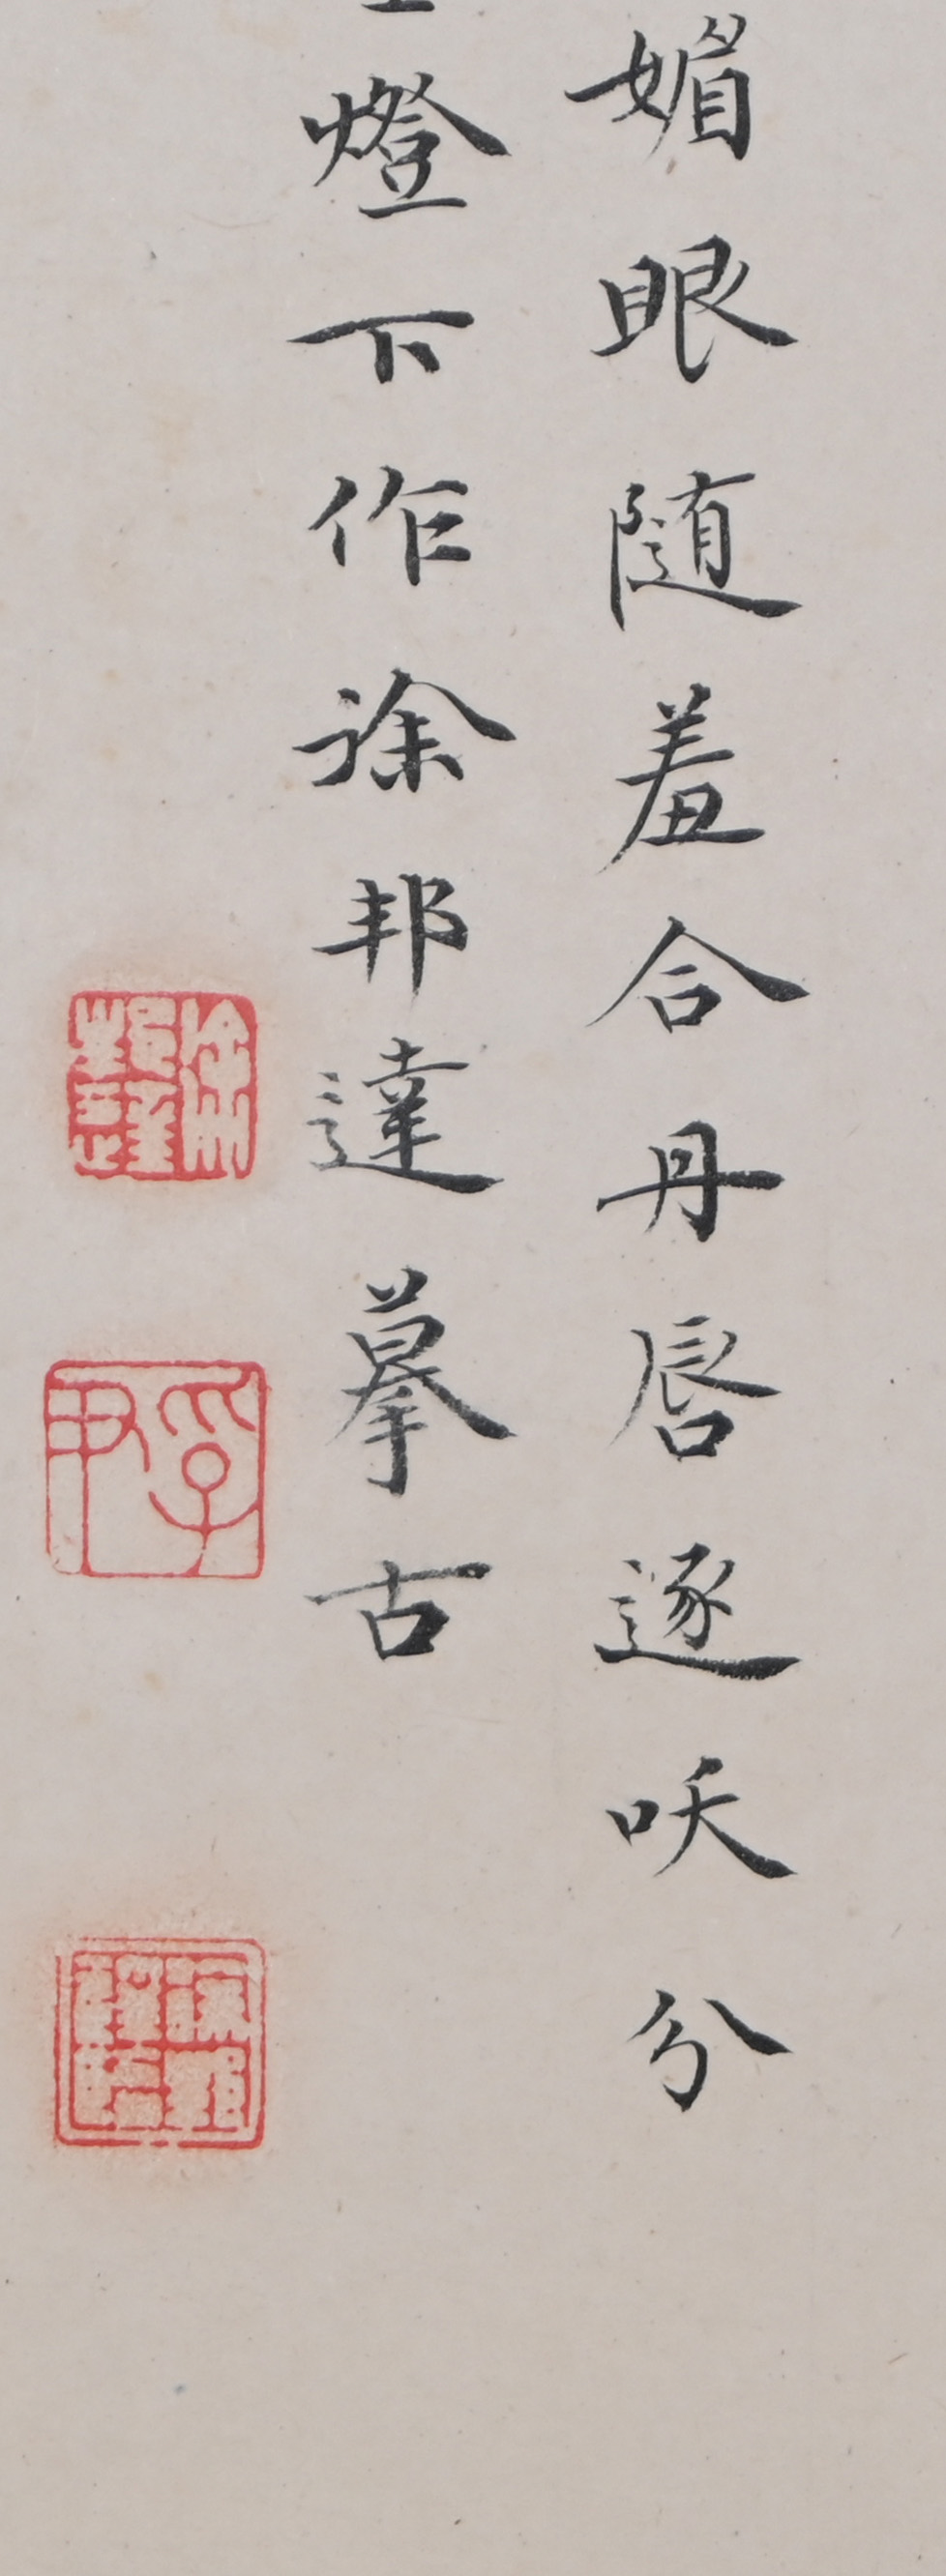 媚眼随羞合丹唇逐㗛分
燈下作徐邦達摹古
孚尹